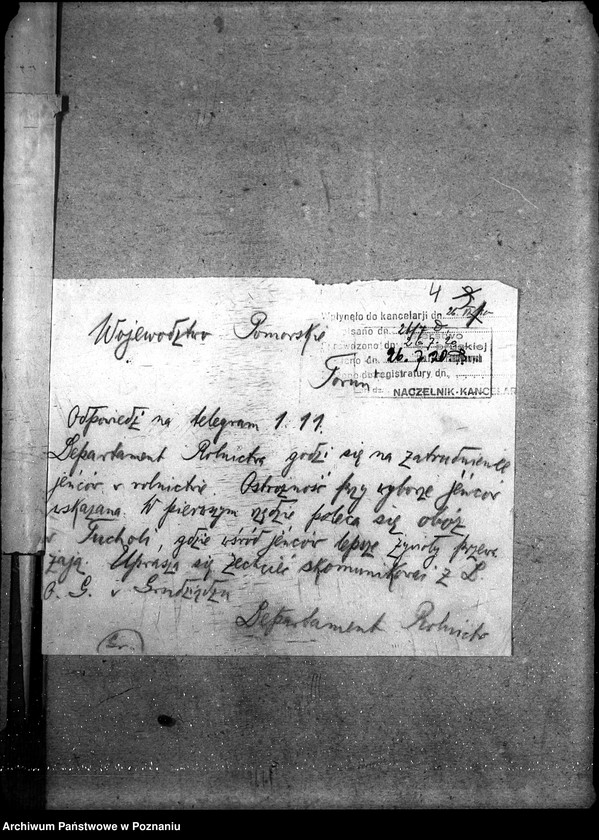 4
Wpłynęło do kancelarji dn. 26
Województwo Pomorskie
26.7.20
Toruń
registratury dn.
NACZELNIK-KANCELAR
Odpowiedź na telegram 1.11.
Departament Rolnictwa godzi się na zatrudnienie
jeńców w rolnictwie. Ostrożność przy wyborze jeńców
wskazana. W pierwszym rzędzie poleca się obóz
w Tucholi, gdzie wśród jeńców lepsze żywioły przewa
żają. Uprasza się zechcieć skomunikować z D.
O. G. w Grudziądzu
Departament Rolnictw
Archiwum Państwowe w Poznaniu